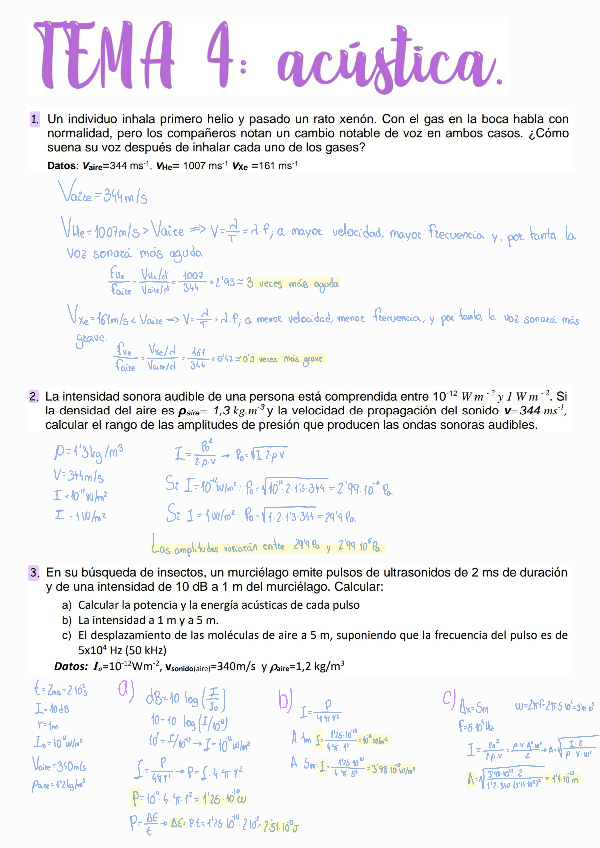 TEMA 4: acústica.
1. Un individuo inhala primero helio y pasado un rato xenón. Con el gas en la boca habla con
normalidad, pero los compañeros notan un cambio notable de voz en ambos casos. ¿Cómo
suena su voz después de inhalar cada uno de los gases?
Datos: Vaire=344 ms⁻¹, VHe= 1007 ms⁻¹ VXe =161 ms⁻¹
Vaire = 344m/s
VHe = 1007m/s > Vaire => V = λ/T = λ·f, a mayor velocidad, mayor frecuencia y, por tanto la
voz sonará más aguda
fHe/faire = VHe/λ / Vaire/λ = 1007/344 = 2'93 ≈ 3 veces más aguda
VXe = 161m/s < Vaire => V = λ/T = λ·f, a menor velocidad, menor frecuencia, y por tanto, la voz sonará más
grave.
fXe/faire = VXe/λ / Vaire/λ = 161/344 = 0'42 ≈ 0'5 veces más grave
2. La intensidad sonora audible de una persona está comprendida entre 10⁻¹² W m⁻² y 1 W m⁻². Si
la densidad del aire es ρaire= 1,3 kg.m⁻³ y la velocidad de propagación del sonido v=344 ms⁻¹,
calcular el rango de las amplitudes de presión que producen las ondas sonoras audibles.
ρ = 1'3 kg/m³ I = P₀²/2·ρ·v → P₀ = √I 2 ρ v
V = 344m/s
I = 10⁻¹² W/m² Si I = 10⁻¹² W/m²: P₀ = √10⁻¹²·2·1'3·344 = 2'99·10⁻⁵ Pa
I = 1 W/m² Si I = 1 W/m² P₀ = √1·2·1'3·344 = 29'9 Pa
Las amplitudes variarán entre 29'9 Pa y 2'99·10⁻⁵ Pa
3. En su búsqueda de insectos, un murciélago emite pulsos de ultrasonidos de 2 ms de duración
y de una intensidad de 10 dB a 1 m del murciélago. Calcular:
a) Calcular la potencia y la energía acústicas de cada pulso
b) La intensidad a 1 m y a 5 m.
c) El desplazamiento de las moléculas de aire a 5 m, suponiendo que la frecuencia del pulso es de
5x10⁴ Hz (50 kHz)
Datos: I₀=10⁻¹²Wm⁻², vsonido(aire)=340m/s y ρaire=1,2 kg/m³
t = 2ms = 2·10⁻³s
I = 10dB
r = 1m
I₀ = 10⁻¹² W/m²
Vaire = 340m/s
ρaire = 1'2 kg/m³
a) dB = 10 log (I/I₀)
10 = 10 log (I/10⁻¹²)
10¹ = I/10⁻¹² → I = 10⁻¹¹ W/m²
I = P/4πr² → P = I·4πr²
P = 10⁻¹¹·4·π·1² = 1'25·10⁻¹⁰ W
P = ΔE/t → ΔE = P·t = 1'25·10⁻¹⁰·2·10⁻³ = 2'51·10⁻¹³ J
b) I = P/4πr²
A 1m I = 1'25·10⁻¹⁰/4·π·1² = 10⁻¹¹ W/m²
A 5m: I = 1'25·10⁻¹⁰/4·π·5² = 3'98·10⁻¹³ W/m²
c) Δx = 5m w = 2πf = 2π·5·10⁴ = 3'14·10⁵
f = 5·10⁴ Hz